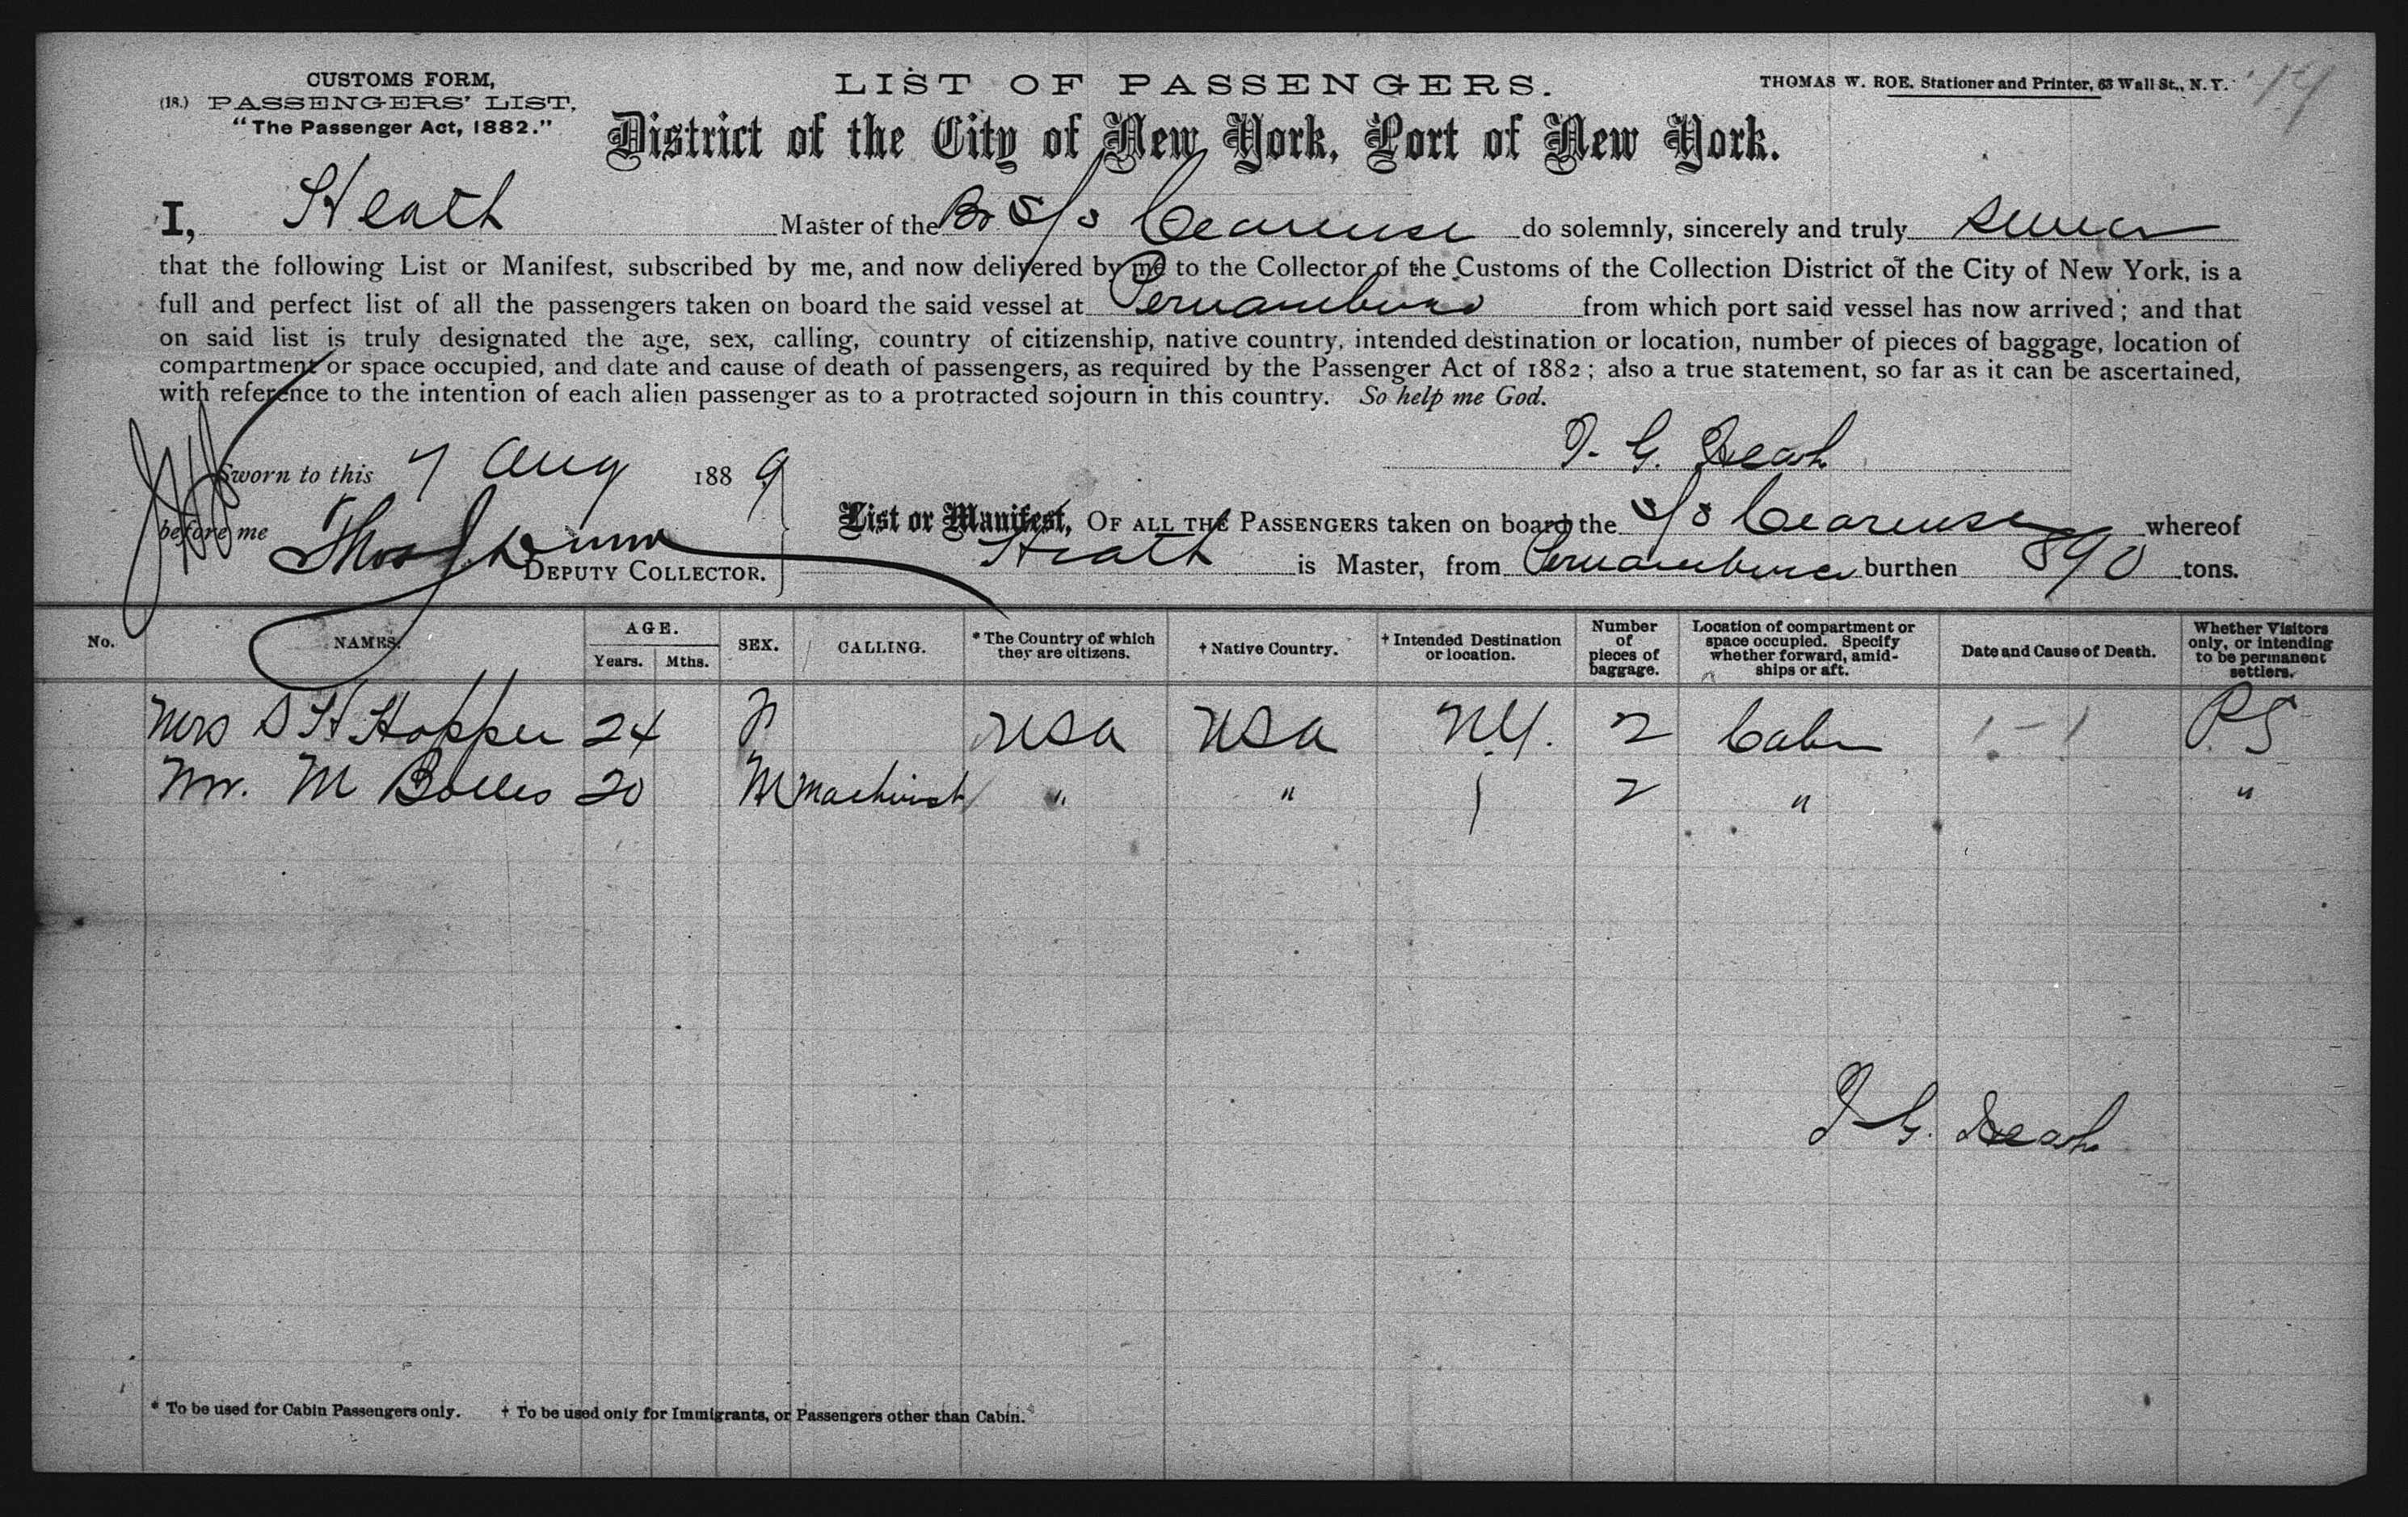 CUSTOMS FORM,
(18.) PASSENGERS' LIST,
"The Passenger Act, 1882."
LIST OF PASSENGERS.
THOMAS W. ROE, Stationer and Printer, 63 Wall St., N. Y.
District of the City of New York, Port of New York.
I, Heath Master of the Br S/s Cearense do solemnly, sincerely and truly swear
that the following List or Manifest, subscribed by me, and now delivered by me to the Collector of the Customs of the Collection District of the City of New York, is a
full and perfect list of all the passengers taken on board the said vessel at Pernambuco from which port said vessel has now arrived; and that
on said list is truly designated the age, sex, calling, country of citizenship, native country, intended destination or location, number of pieces of baggage, location of
compartment or space occupied, and date and cause of death of passengers, as required by the Passenger Act of 1882; also a true statement, so far as it can be ascertained,
with reference to the intention of each alien passenger as to a protracted sojourn in this country. So help me God.
Sworn to this 7 Aug 1889
G. Heath
before me Thos J. Dunn
DEPUTY COLLECTOR.
List or Manifest, OF ALL THE PASSENGERS taken on board the S/s Cearense whereof
Heath is Master, from Pernambuco burthen 890 tons.
No. NAMES. AGE. Years. Mths. SEX. CALLING. * The Country of which they are citizens. † Native Country. † Intended Destination or location. Number of pieces of baggage. Location of compartment or space occupied. Specify whether forward, amidships or aft. Date and Cause of Death. Whether Visitors only, or intending to be permanent settlers.
Mrs S H Hopper 24 F USA USA N.Y. 2 Cabin PS
Mr. M Bolles 20 M Machinist " " 2 " "
G. Heath
* To be used for Cabin Passengers only. † To be used only for Immigrants, or Passengers other than Cabin.